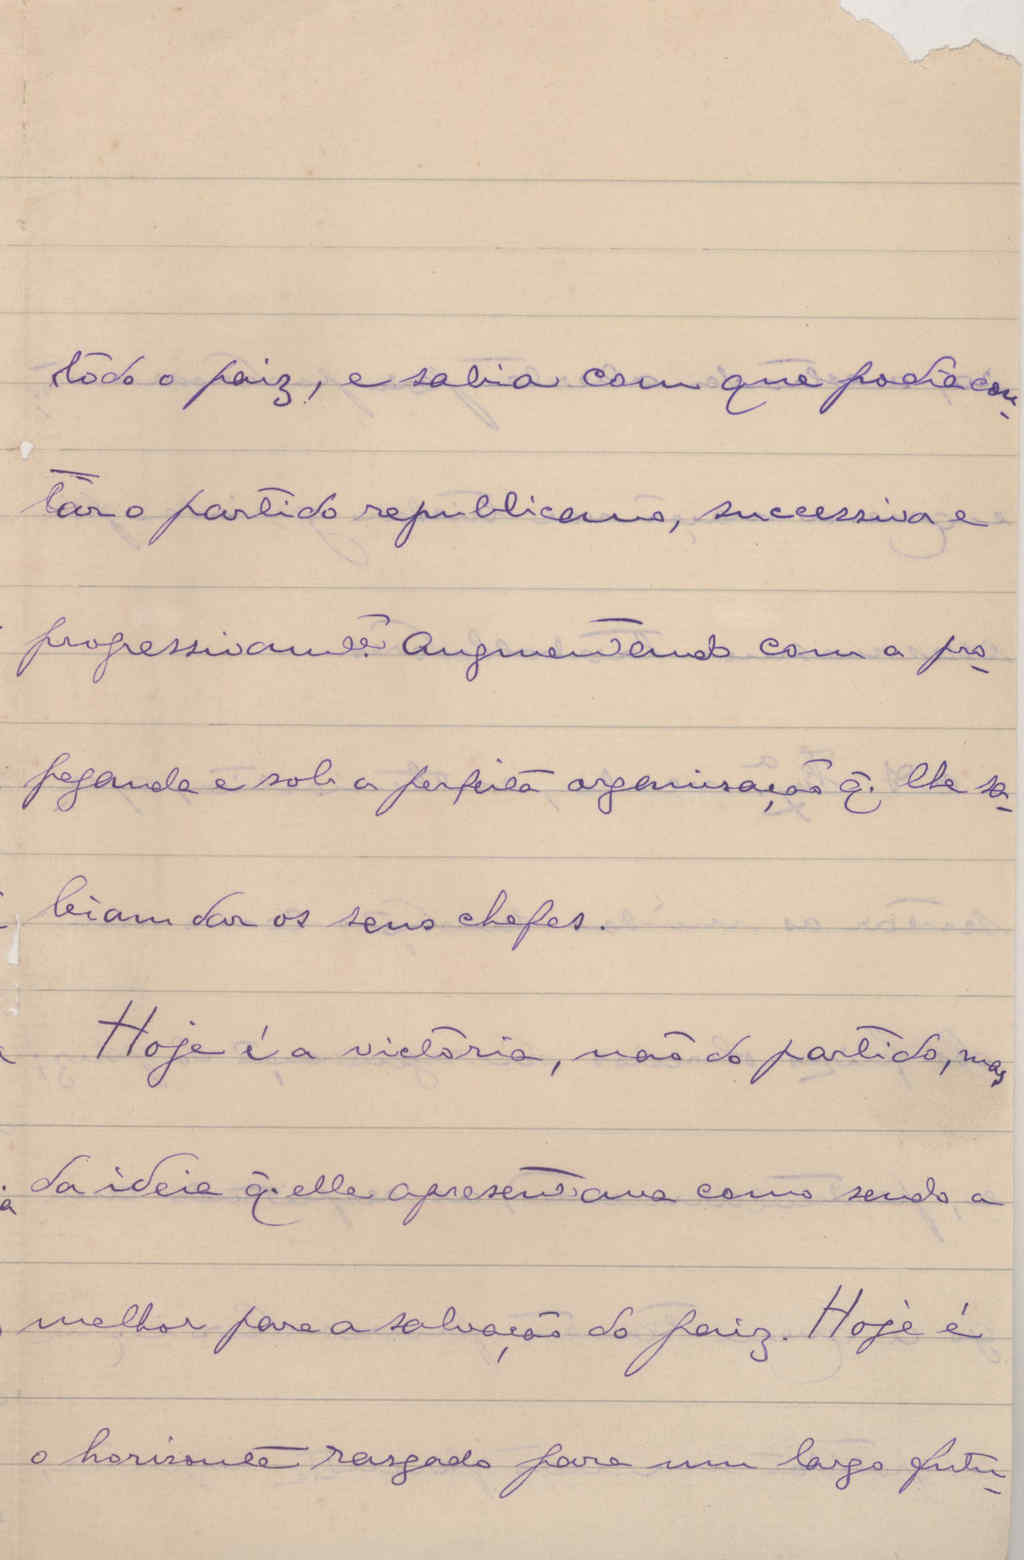 todo o paiz, e sabia com que podia con-
tar o partido republicano, successiva e
progressivamte. augmentando com a pro-
paganda e sob a perfeita organisação q. lhe sa-
biam dar os seus chefes.
Hoje é a victória, não do partido, mas
da ideia q. elle apresentava como sendo a
melhor para a salvação do paiz. Hoje é
o horisonte rasgado para um largo futu-